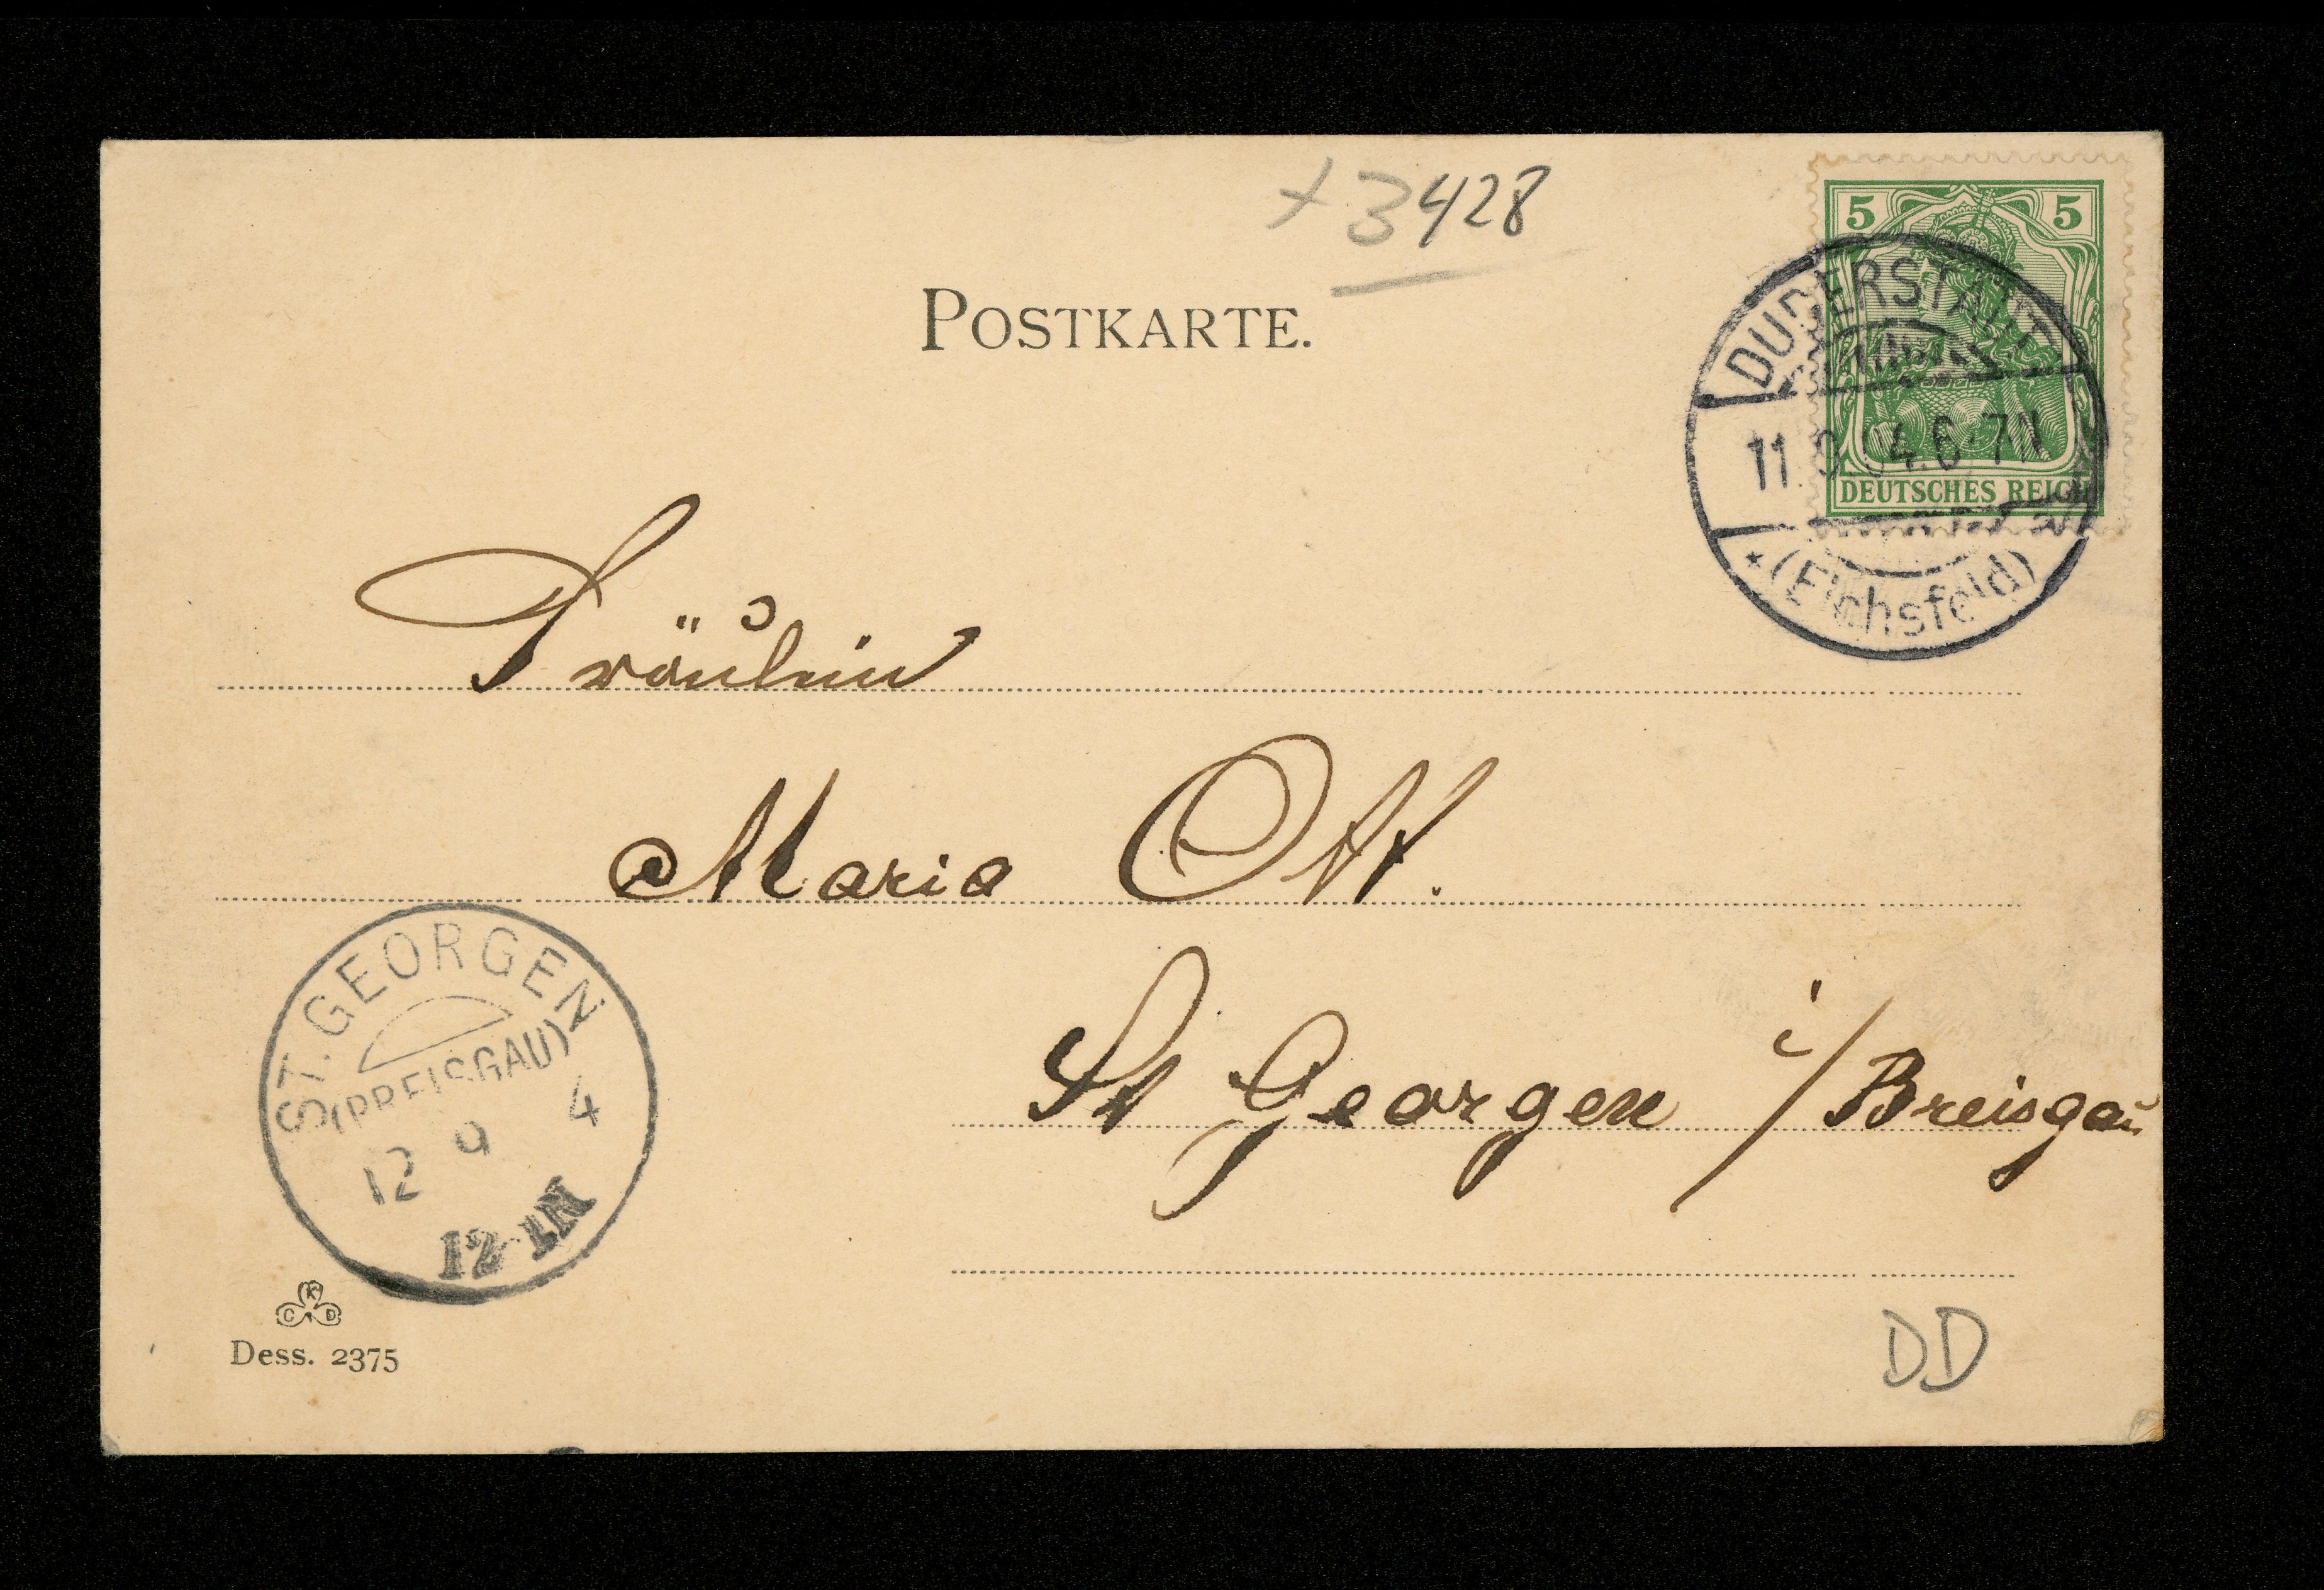 + 3428
POSTKARTE.
5 5
DEUTSCHES REICH
DUDERSTADT
11.9.04.6-7N
* (Eichsfeld)
Fräulein
Maria Ott.
St Georgen i/Breisgau
ST. GEORGEN
(BREISGAU)
12 9 4
12-1N
C K D
Dess. 2375
DD